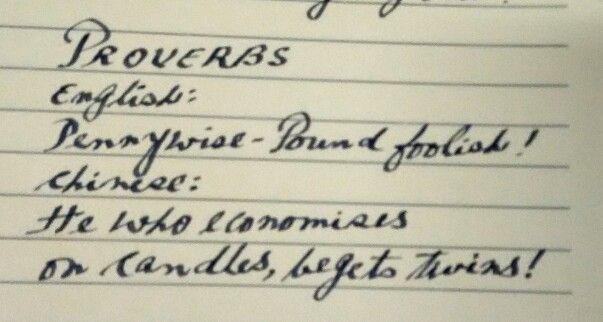 PROVERBS
English:
Pennywise - Pound foolish!
Chinese:
He who economises
on candles, begets twins!